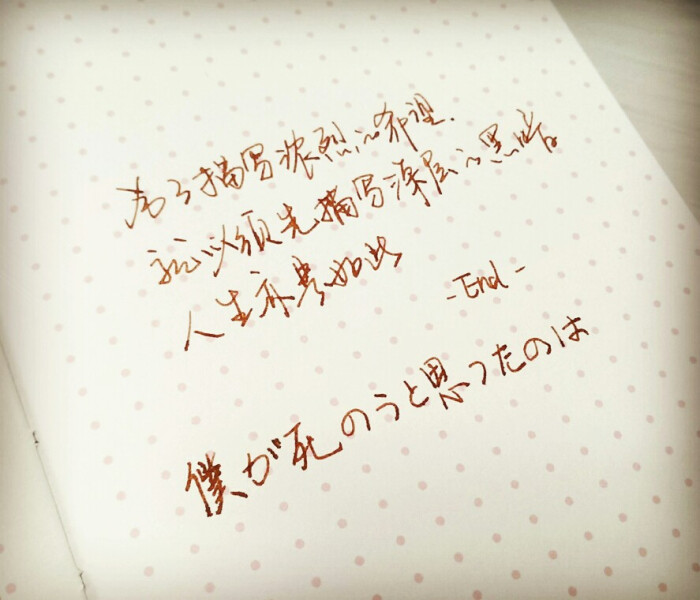 为了描写浓烈的希望.
就必须先描写深层的黑暗
人生亦是如此
-End-
僕が死のうと思ったのは